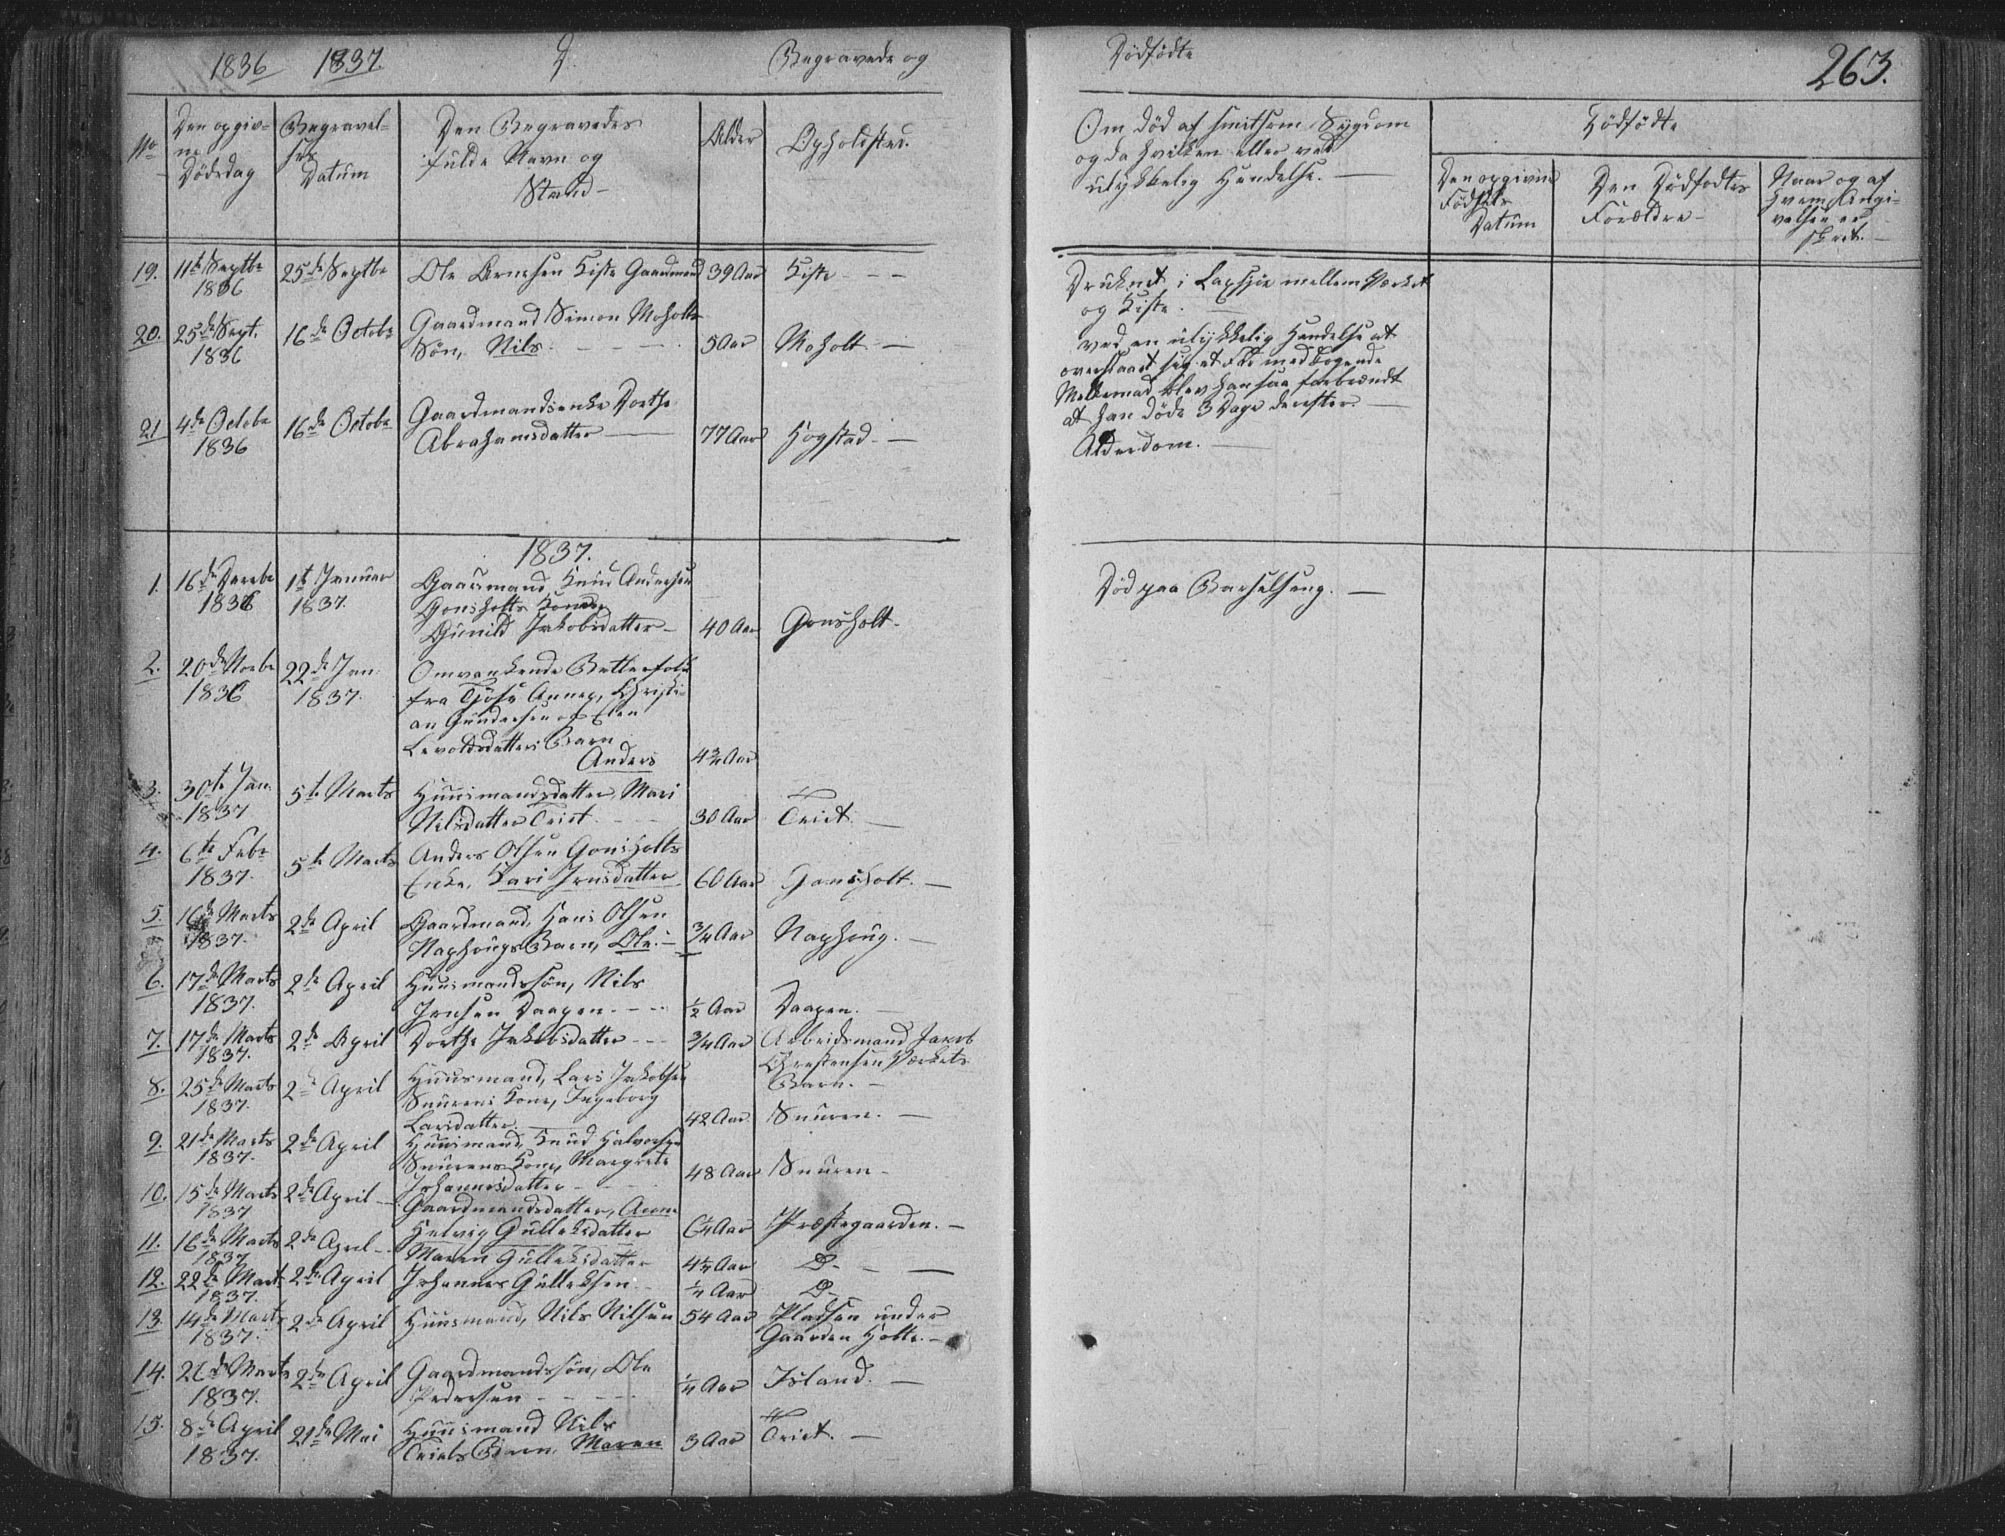 1836 1837. Begravede og
Dødfødte
263.
No
Den opgiv-
ne
Dødsdag
Begravel-
ses
Datum
Den Begravedes
fulde Navn og
Stand
Alder
Opholdsted.
Om død af smitsom Sygdom
og da hvilken eller ved
ulykkelig Hendelse.
Dødfødte
Den opgivne
Fødsels
Datum
Den Dødfødtes
Forældre
Naar og af
hvem Angi-
velsen er
skeet.
19. 11te Septbr 25de Septbr Ole Arnesen Kiste Gaardmand 39 Aar Kiste
1836
Druknet i Lapsjøe mellem Værket
og Kiste.
20. 25de Sept. 16de Octobr Gaardmand Simon Moholts
1836 Søn, Nils. 5 Aar Moholt
ved en ulykkelig Hendelse at
overslaae sig et Fad med kogende
Melkemad blev han saa forbrændt
at han døde 3 Dage derefter.
21 4de Octobr 16de Octobr Gaardmandsenke Dorthe
1836 Abrahamsdatter 77 Aar Hogstad.
Alderdom.
1837.
1. 16de Decbr 1te Januar Gaardmand Knud Andersen
1836 1837. Gonsholts Kone
Gunild Jakobsdatter 40 Aar Gonsholt.
Død paa Barselseng.
2. 20de Novbr 22de Jan. Omvankende Betlerfolk
1836 1837. fra Tjøse Annex, Christi-
an Gundersen og Elen
Levoldsdatters Barn
Anders 4¾ Aar
3. 30te Jan. 5te Marts Huusmandsdatter, Mari
1837 Nilsdatter Teiet. 30 Aar Teiet.
4. 6te Febr 5te Marts Anders Olsen Gonsholts
1837. Enke, Kari Jensdatter 60 Aar Gonsholt.
5. 16de Marts 2de April Gaardmand, Hans Olsen
1837. Naphougs Barn, Ole. ¾ Aar Naphoug.
6. 17de Marts 2de April Huusmandssøn, Nils
1837. Jensen Daapen. ½ Aar Daapen.
7. 17de Marts 2de April Dorthe Jakobsdatter ¾ Aar Arbeidsmand Jacob
1837. Christensen Værkets
Barn.
8. 25de Marts 2de April Huusmand, Lars Jakobsen
1837. Snurens Kone, Ingeborg
Larsdatter 42 Aar Snuren.
9. 21de Marts 2de April Huusmand, Knud Halvorsen
1837. Snurens Kone, Margrete
Johannesdatter 48 Aar Snuren
10. 15de Marts 2de April Gaardmandsdatter, Anne
1837 Helvig Gulleksdatter 6¼ Aar Præstegaarden.
11. 16de Marts 2de April Maren Gulleksdatter 4¼ Aar D
1837
12. 22de Marts 2de April Johannes Gulleksen ¼ Aar D
1837.
13. 14de Marts 2de April Huusmand, Nils Nilsen 54 Aar Pladsen under
1837. Gaarden Holte.
14. 26de Marts 2de April Gaardmandssøn, Ole
1837. Pedersen ¼ Aar Island.
15. 8de April 21de Mai Huusmand Nils
1837. Teiets Barn, Maren 3 Aar Teiet.